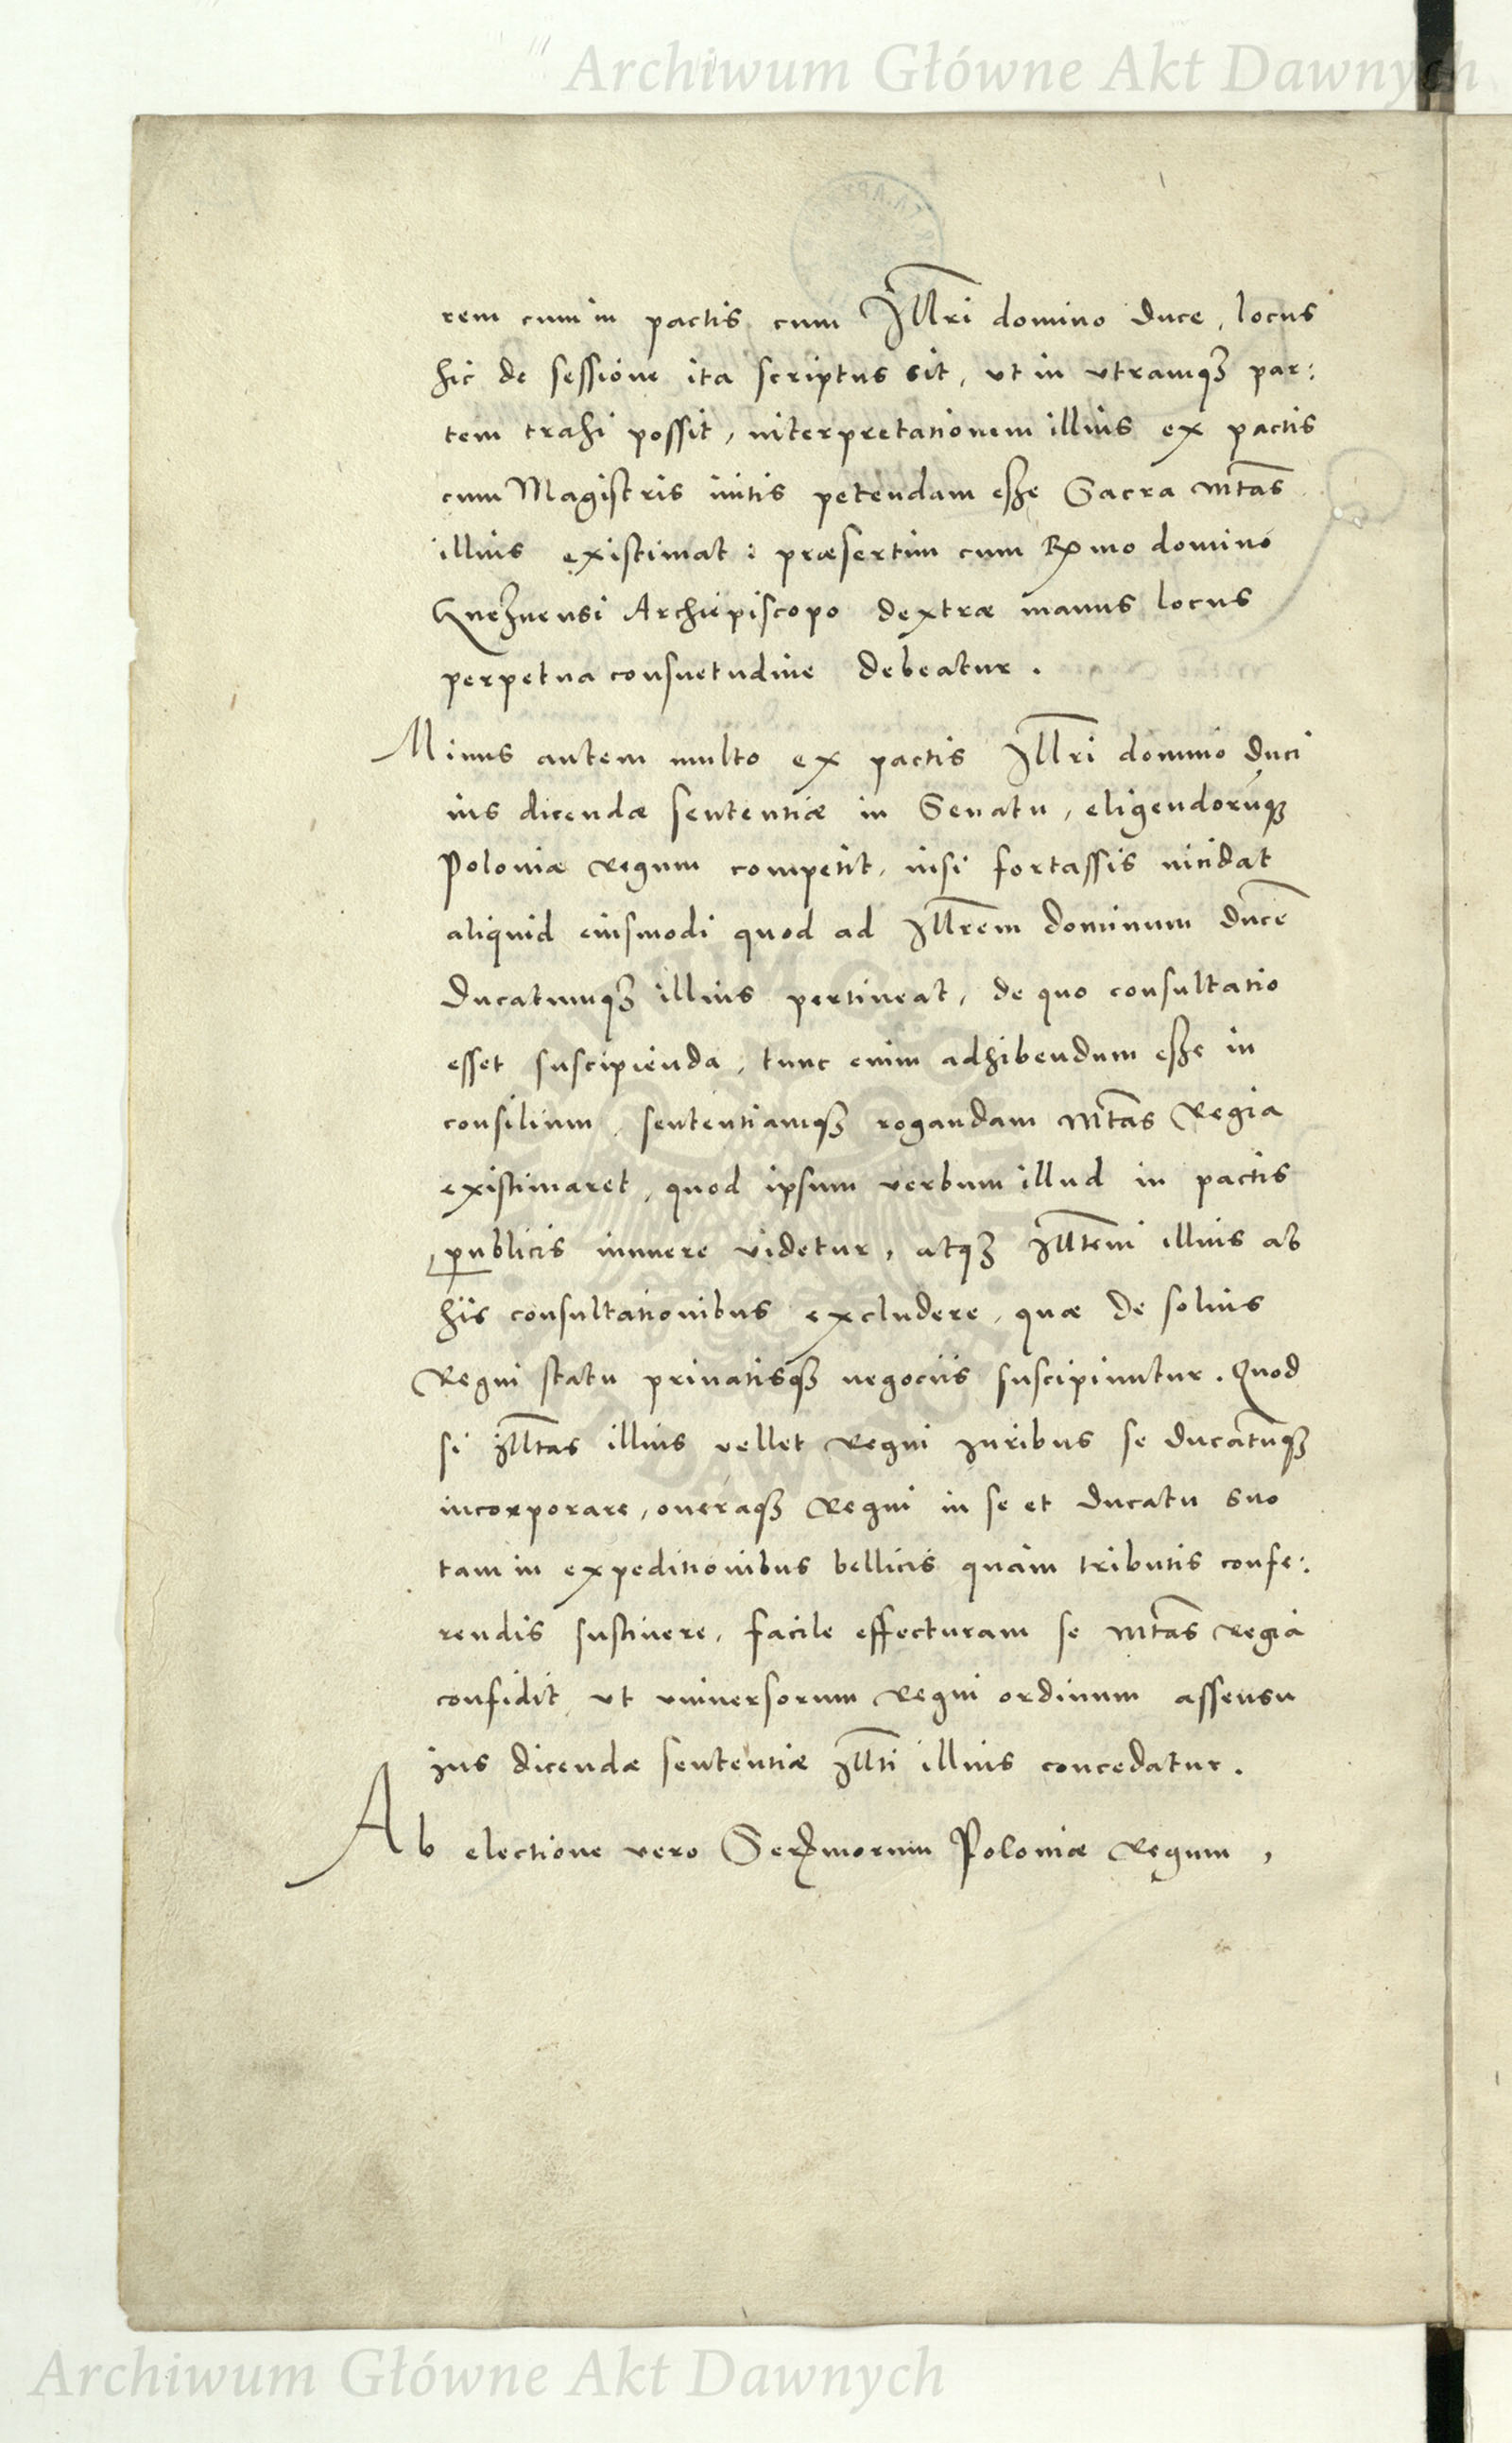 Archiwum Główne Akt Dawnych
rem cum in pactis cum Ill̅ri domino duce, locus
hic de sessione ita scriptus sit, vt in vtramq₃ par:
tem trahi possit, interpretationem illius ex pactis
cum Magistris initis petendam esse Sacra Mt̅as
illius existimat: præsertim cum R̅mo domino
Gneznensi Archiepiscopo dextræ manus locus
perpetua consuetudine debeatur.
Minus autem multo ex pactis Ill̅ri domino duci
ius dicendæ sententiæ in Senatu, eligendorũq₃
Poloniæ Regum competit, nisi fortassis incidat
aliquid eiusmodi quod ad Ill̅rem dominum ducẽ
Ducatumq₃ illius pertineat, de quo consultatio
esset suscipienda, tunc enim adhibendum esse in
consilium, sententiamq₃ rogandam Mt̅as Regia
existimaret, quod ipsum verbum illud in pactis
publicis innuere videtur, atq₃ Ill̅tem illius ab
his consultationibus excludere, quæ de solius
Regni statu priuatisq₃ negociis suscipiuntur. Quod
si Ill̅tas illius vellet Regni iuribus se ducatũq₃
incorporare, oneraq₃ Regni in se et ducatu suo
tam in expeditionibus bellicis quàm tributis confe:
rendis sustinere, facile effecturam se Mt̅as Regia
confidit, vt vniuersorum Regni ordinum assensu
ius dicendæ sententiæ Ill̅ti illius concedatur.
Ab electione vero Ser̅morum Poloniæ Regum,
Archiwum Główne Akt Dawnych